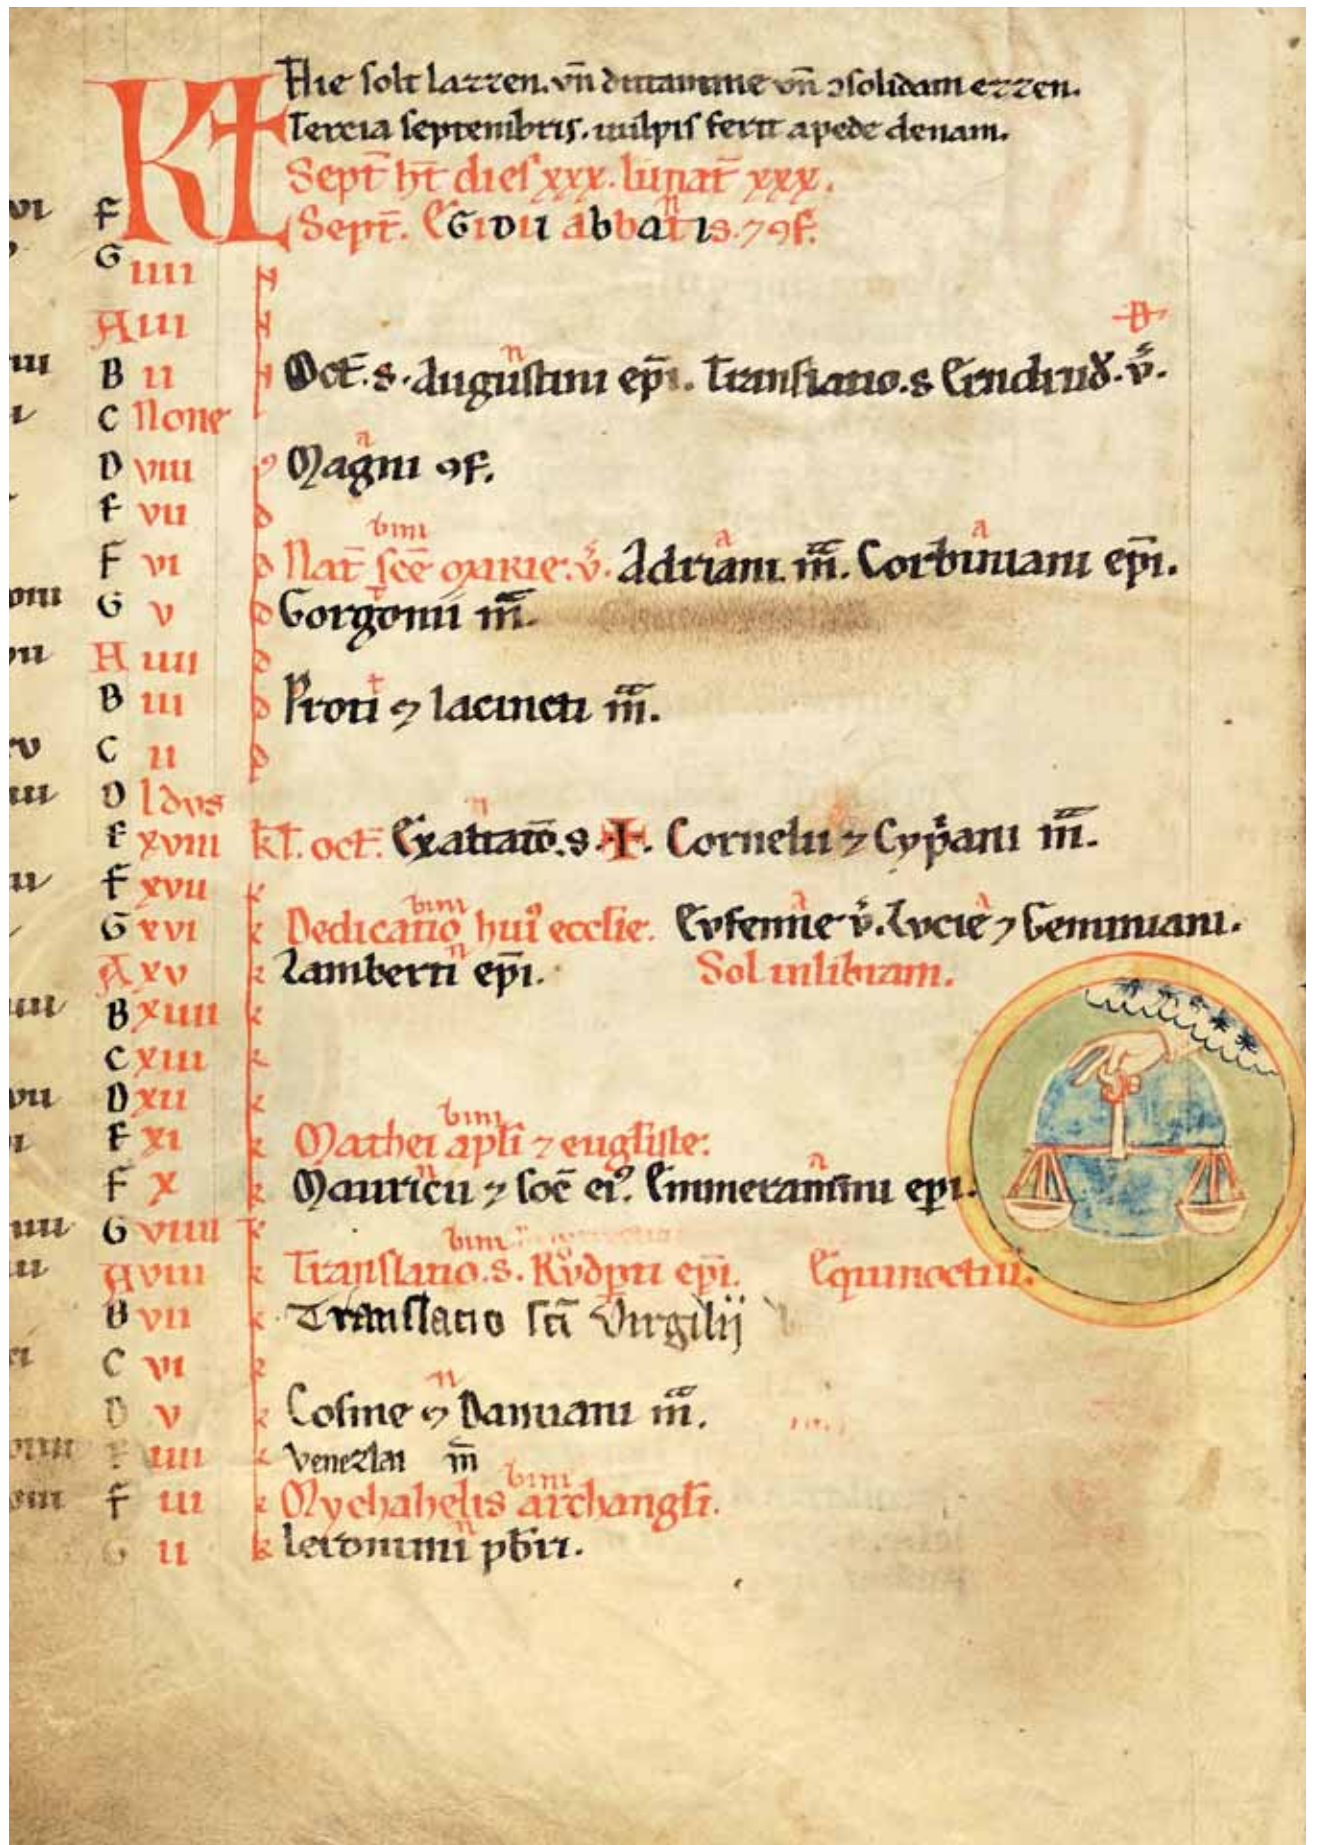 KL Hie solt lazzen. vn̄ dictamme vn̄ ꝯsolidam ezzen.
Tercia septembris. uulpis ferit a pede denam.
Sept̄ hт̄ dies xxx. lunat̄ xxx.
vi F Sept̄. EGIDII abbatis. ⁊ ꝯf.
G iiii N
A iii N
B ii N Oct̄. s. Augustini ep̄i. Translatio. s
C None
D viii Magni ꝯf.
F vii d
F vi d Nat̄ sc̄e MARIE. v̄. Adriani m̄. Corbiniani ep̄i.
G v d Gorgonii m̄.
A iiii d
B iii d Proti ⁊ Iacincti m̄.
C ii d
D Idus
F xviii kł. oct̄. Exaltatio. s. ✠. Cornelii ⁊ Cypriani m̄.
F xvii k
G xvi k Dedicatio huiꝰ eccl̄ie. Eufemie v̄. Lucie ⁊ Geminiani.
A xv k Lamberti ep̄i. Sol in libram.
B xiiii k
C xiii k
D xii k
F xi k Mathei apl̄i ⁊ eugl̄iste:
F x k Mauricii ⁊ soc̄ eiꝰ. Emmerammi ep̄i.
G viiii k
A viii k Translatio. s. Rudp̄ti ep̄i. Equinoctiū.
B vii k Translatio sc̄i Virgilij
C vi k
D v k Cosme ⁊ Damiani m̄.
F iiii k Venezlai m̄
F iii k Mychahelis archangl̄i.
G ii k Ieronimi pb̄ri.